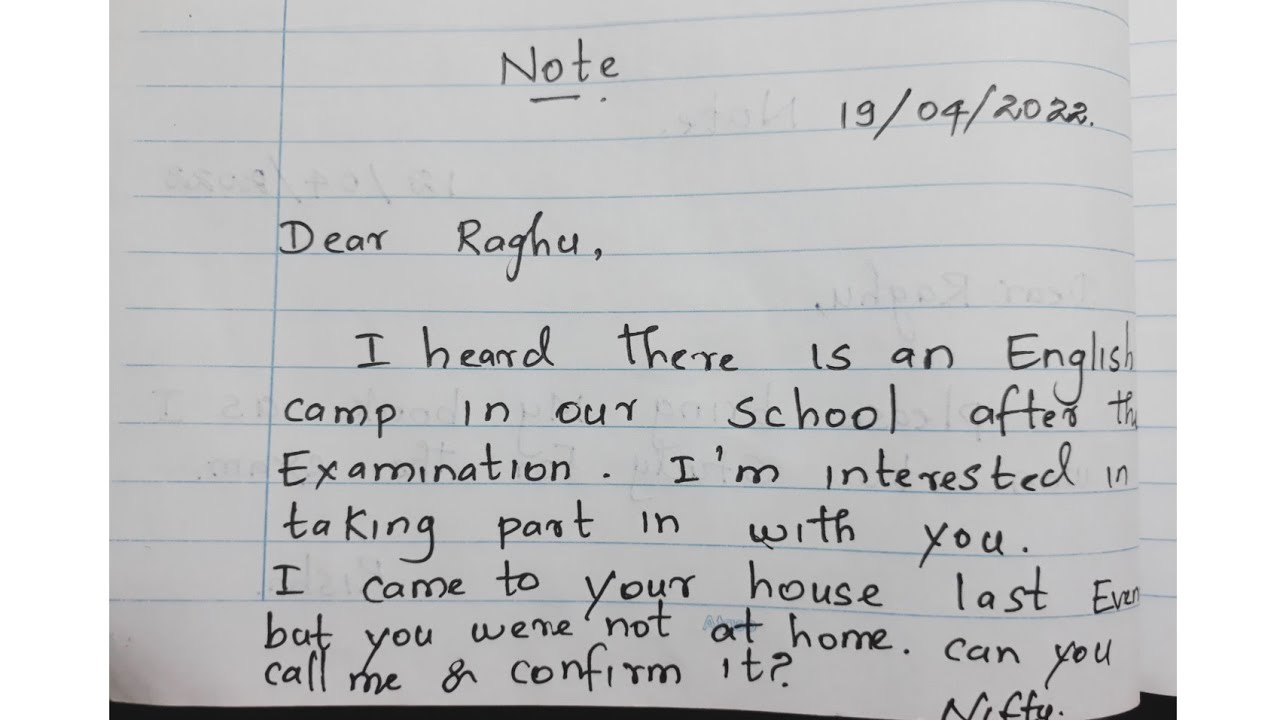 Note
19/04/2022.
Dear Raghu,
I heard there is an English
camp in our school after th
Examination. I'm interested in
taking part in with you.
I came to your house last Even
but you were not at home. can you
call me & confirm it?
Nifty.